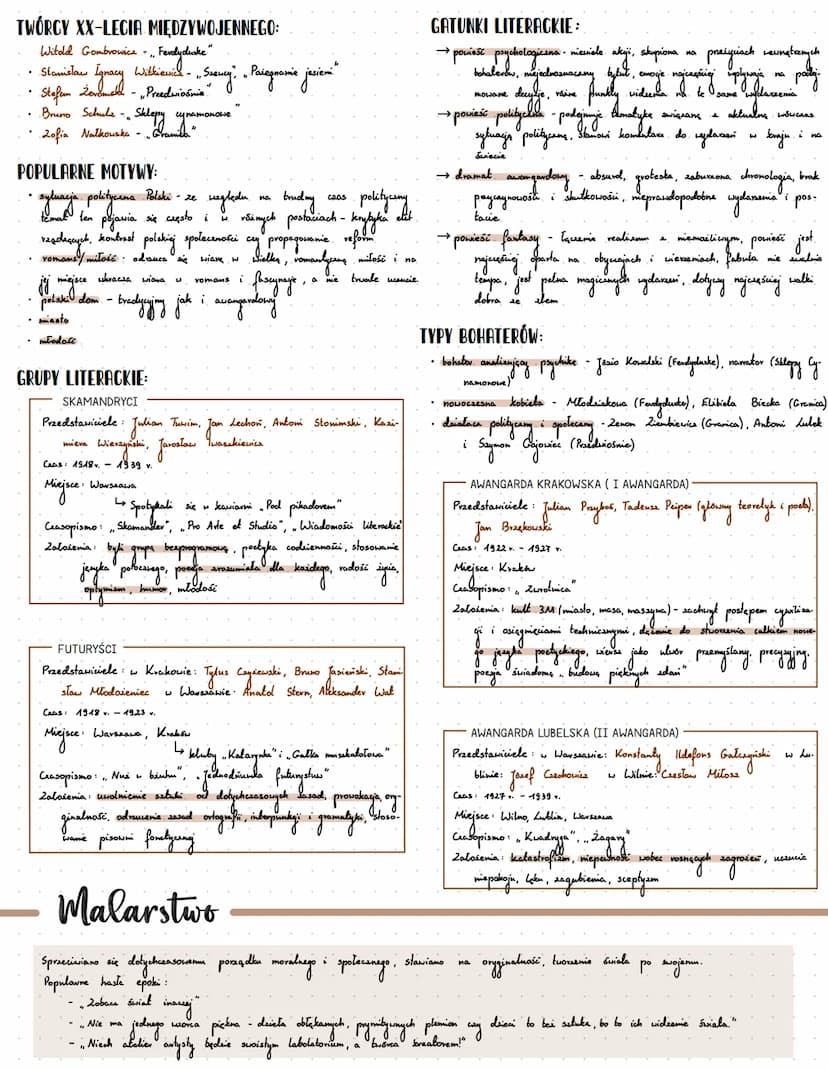 TWÓRCY XX-LECIA MIĘDZYWOJENNEGO:
Witold Gombrowicz - „Ferdydurke"
· Stanisław Ignacy Witkiewicz - „Szewcy", „Pożegnanie jesieni"
· Stefan Żeromski - „Przedwiośnie"
· Bruno Schulz - „Sklepy cynamonowe"
· Zofia Nałkowska - „Granica"
POPULARNE MOTYWY:
· sytuacja polityczna Polski - ze względu na trudny czas polityczny
temat ten pojawia się często i w różnych postaciach - krytyka elit
rządzących, kontrast polskiej społeczności czy propagowanie reform
· romans/miłość : odrzuca się wiarę w wielką, romantyczną miłość i na
jej miejsce wkracza wiara w romans i fascynację, a nie trwałe uczucie
· polski dom - tradycyjny jak i awangardowy
· miasto
· młodość
GRUPY LITERACKIE:
SKAMANDRYCI
Przedstawiciele : Julian Tuwim, Jan Lechoń, Antoni Słonimski, Kazi-
mierz Wierzyński, Jarosław Iwaszkiewicz
Czas : 1918r. - 1939 r.
Miejsce : Warszawa
↳ Spotykali się w kawiarni „Pod pikadorem"
Czasopismo : „Skamander", „Pro Arte et Studio", „Wiadomości literackie"
Założenia : byli grupą bezprogramową, poetyka codzienności, stosowanie
języka potocznego, poezja zrozumiała dla każdego, radość życia,
optymizm, humor, młodość
FUTURYŚCI
Przedstawiciele : w Krakowie : Tytus Czyżewski, Bruno Jasieński, Stani
sław Młodożeniec w Warszawie : Anatol Stern, Aleksander Wat
Czas : 1918 r. - 1923 r.
Miejsce : Warszawa, Kraków
↳ kluby „Katarynka" i „Gałka muszkatołowa"
Czasopismo : „Nuż w bżuhu", „Jednodńuwka futurystuw"
Założenia : uwolnienie sztuki od dotychczasowych zasad, prowokacja, ory-
ginalność, odrzucenie zasad ortografii, interpunkcji i gramatyki, stoso-
wanie pisowni fonetycznej
GATUNKI LITERACKIE :
→ powieść psychologiczna - niewiele akcji, skupiona na przeżyciach wewnętrznych
bohaterów, niejednoznaczny tytuł, emocje najczęściej wpływają na podej-
mowane decyzje, różne punkty widzenia na te same wydarzenia
→ powieść polityczna - podejmuje tematykę związaną z aktualną wówczas
sytuacją polityczną, stanowi komentarz do wydarzeń w kraju i na
świecie
→ dramat awangardowy - absurd, groteska, zaburzona chronologia, brak
przyczynowości i skutkowości, nieprawdopodobne wydarzenia i pos-
tacie
→ powieść fantasy - łączenie realizmu z niemożliwym, powieść jest
najczęściej oparta na obyczajach i wierzeniach, fabuła nie zwalnia
tempa, jest pełna magicznych wydarzeń, dotyczy najczęściej walki
dobra ze złem
TYPY BOHATERÓW:
· bohater analizujący psychikę - Józio Kowalski (Ferdydurke), narrator (Sklepy Cy-
namonowe)
· nowoczesna kobieta - Młodziakowa (Ferdydurke), Elżbieta Biecka (Granica)
· działacz polityczny i społeczny - Zenon Ziembiewicz (Granica), Antoni Lulek
i Szymon Gajowiec (Przedwiośnie)
AWANGARDA KRAKOWSKA ( I AWANGARDA)
Przedstawiciele : Julian Przyboś, Tadeusz Peiper (główny teoretyk i poeta),
Jan Brzękowski
Czas : 1922 r. - 1927 r.
Miejsce : Kraków
Czasopismo : „Zwrotnica"
Założenia : kult 3M (miasto, masa, maszyna) - zachwyt postępem cywiliza-
cji i osiągnięciami technicznymi, dążenie do stworzenia całkiem nowe-
go języka poetyckiego, wiersz jako utwór przemyślany, precyzyjny,
poezja świadomą „budową pięknych zdań"
AWANGARDA LUBELSKA (II AWANGARDA)
Przedstawiciele : w Warszawie: Konstanty Ildefons Gałczyński w Lu-
blinie: Józef Czechowicz w Wilnie: Czesław Miłosz
Czas : 1927 r. - 1939 r.
Miejsce : Wilno, Lublin, Warszawa
Czasopismo : „Kwadryga", „Żagary"
Założenia : katastrofizm, niepewność wobec rosnących zagrożeń, uczucie
niepokoju, lęku, zagubienia, sceptyzm
Malarstwo
Sprzeciwiano się dotychczasowemu porządku moralnego i społecznego, stawiano na oryginalność, tworzenie świata po swojemu.
Popularne hasła epoki :
- „Zobacz świat inaczej"
- „Nie ma jednego wzorca piękna - dzieła obłąkanych, prymitywnych plemion czy dzieci to też sztuka, bo to ich widzenie świata."
- „Niech atelier artysty będzie swoistym labolatorium, a twórca kreatorem!"